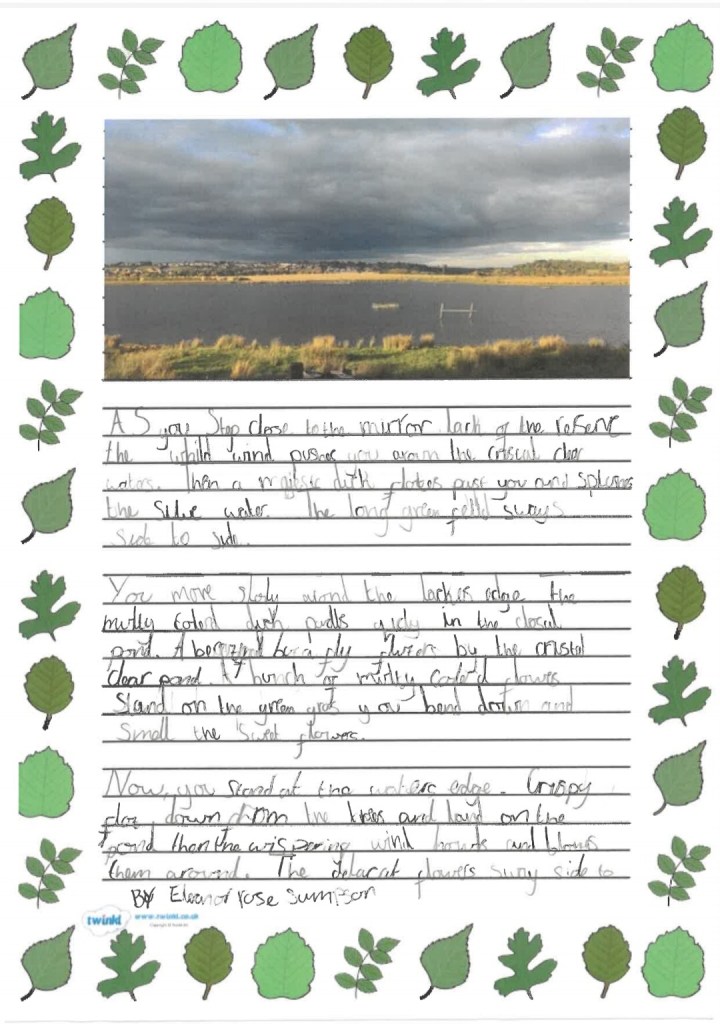 AS you Stop close to the mirror lack of the reserve
the whild wind pushes you aroun the cristal clear
waters. Then a majitsic duck flotes past you and splashes
the side water. The long green feild sways
side to side.
You move sloly arond the lackes edge the
multy colerd duck pudls in the closist
pond. A butifly fluters by the cristal
clear pond. A bunch of multy coolerd flowers
Stand on the green gras you bend down and
Smell the sweet flowers.
Now, you stand at the waters edge. Crispy
down from the trees and land on the
pond than the wispering wind howls and blows
them around. The delacat flowers sway side to
BY Eleanor rose Sumpson
twinkl www.twinkl.co.uk